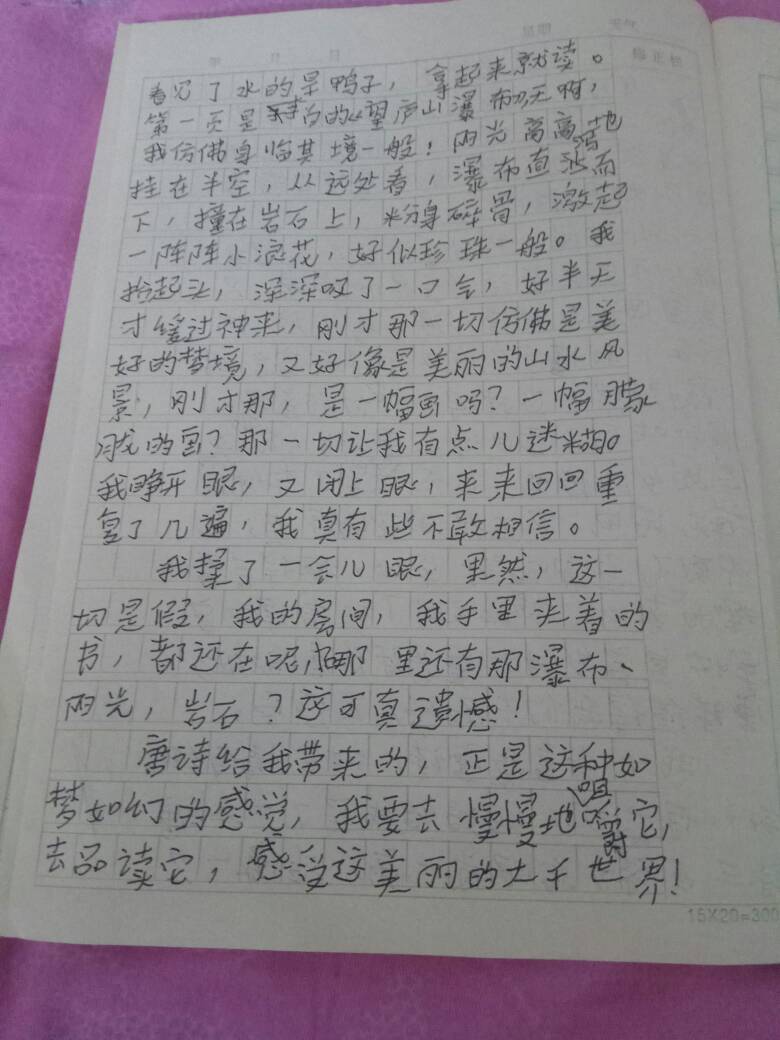 看见了水的旱鸭子，拿起来就读。
第一页是李白的《望庐山瀑布》，天啊，
我仿佛身临其境一般！阳光高高地
挂在半空，从远处看，瀑布直泻而
下，撞在岩石上，粉身碎骨，激起
一阵阵小浪花，好似珍珠一般。我
抬起头，深深叹了一口气，好半天
才缓过神来，刚才那一切仿佛是美
好的梦境，又好像是美丽的山水风
景，刚才那，是一幅画吗？一幅朦
胧的画？那一切让我有点儿迷糊。
我睁开眼，又闭上眼，来来回回重
复了几遍，我真有些不敢相信。
我揉了一会儿眼，果然，这一
切是假，我的房间，我手里夹着的
书，都还在呢，哪里还有那瀑布、
阳光，岩石？这可真遗憾！
唐诗给我带来的，正是这种如
梦如幻的感觉，我要去慢慢地咀嚼它，
去品读它，感受这美丽的大千世界！
15X20=300